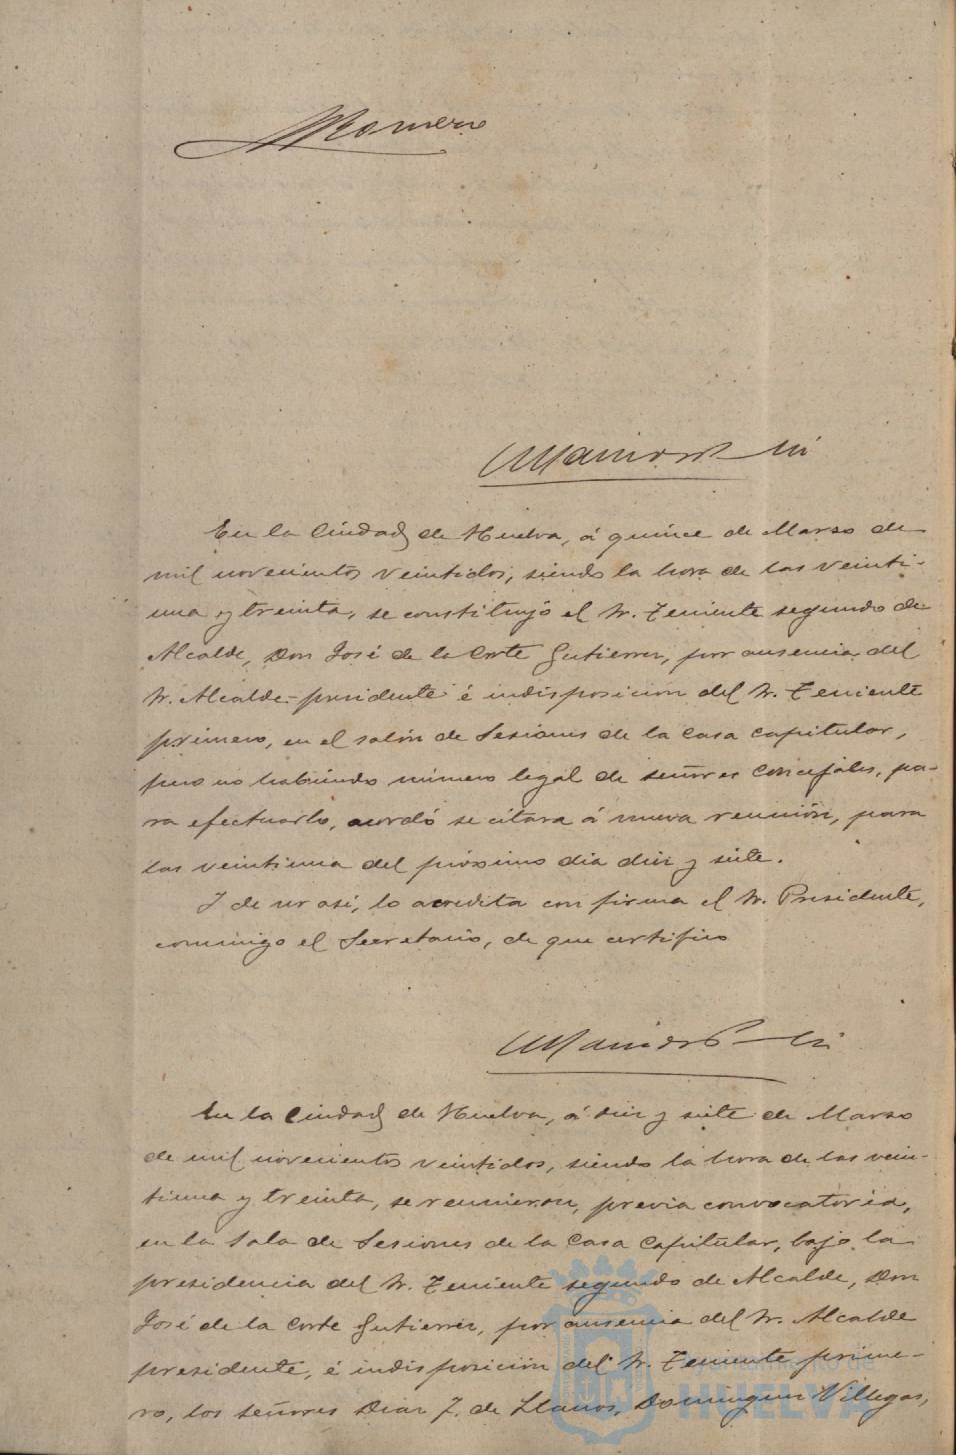 Romero
En la Ciudad de Huelva, á quince de Marzo de
mil novecientos veintidos, siendo la hora de las veinti-
una y treinta, se constituyó el Sr. Teniente segundo de
Alcalde, Don José de la Corte Gutierrez, por ausencia del
Sr. Alcalde-presidente é indisposicion del Sr. Teniente
primero, en el salón de Sesiones de la Casa Capitular,
pero no habiendo número legal de señores Concejales, pa-
ra efectuarlo, acordó se citara á nueva reunión, para
las veintiuna del próximo dia diez y siete.
Y de ser asi, lo acredita con firma el Sr. Presidente,
conmigo el Secretario, de que certifico
En la Ciudad de Huelva, á diez y siete de Marzo
de mil novecientos veintidos, siendo la hora de las vein-
tiuna y treinta, se reunieron, previa convocatoria,
en la Sala de Sesiones de la Casa Capitular, bajo la
presidencia del Sr. Teniente segundo de Alcalde, Don
José de la Corte Gutierrez, por ausencia del Sr. Alcalde
presidente, é indisposición del Sr. Teniente prime-
ro, los señores Diaz F. de Llanos, Dominguez Villegas,
Ayuntamiento de
HUELVA